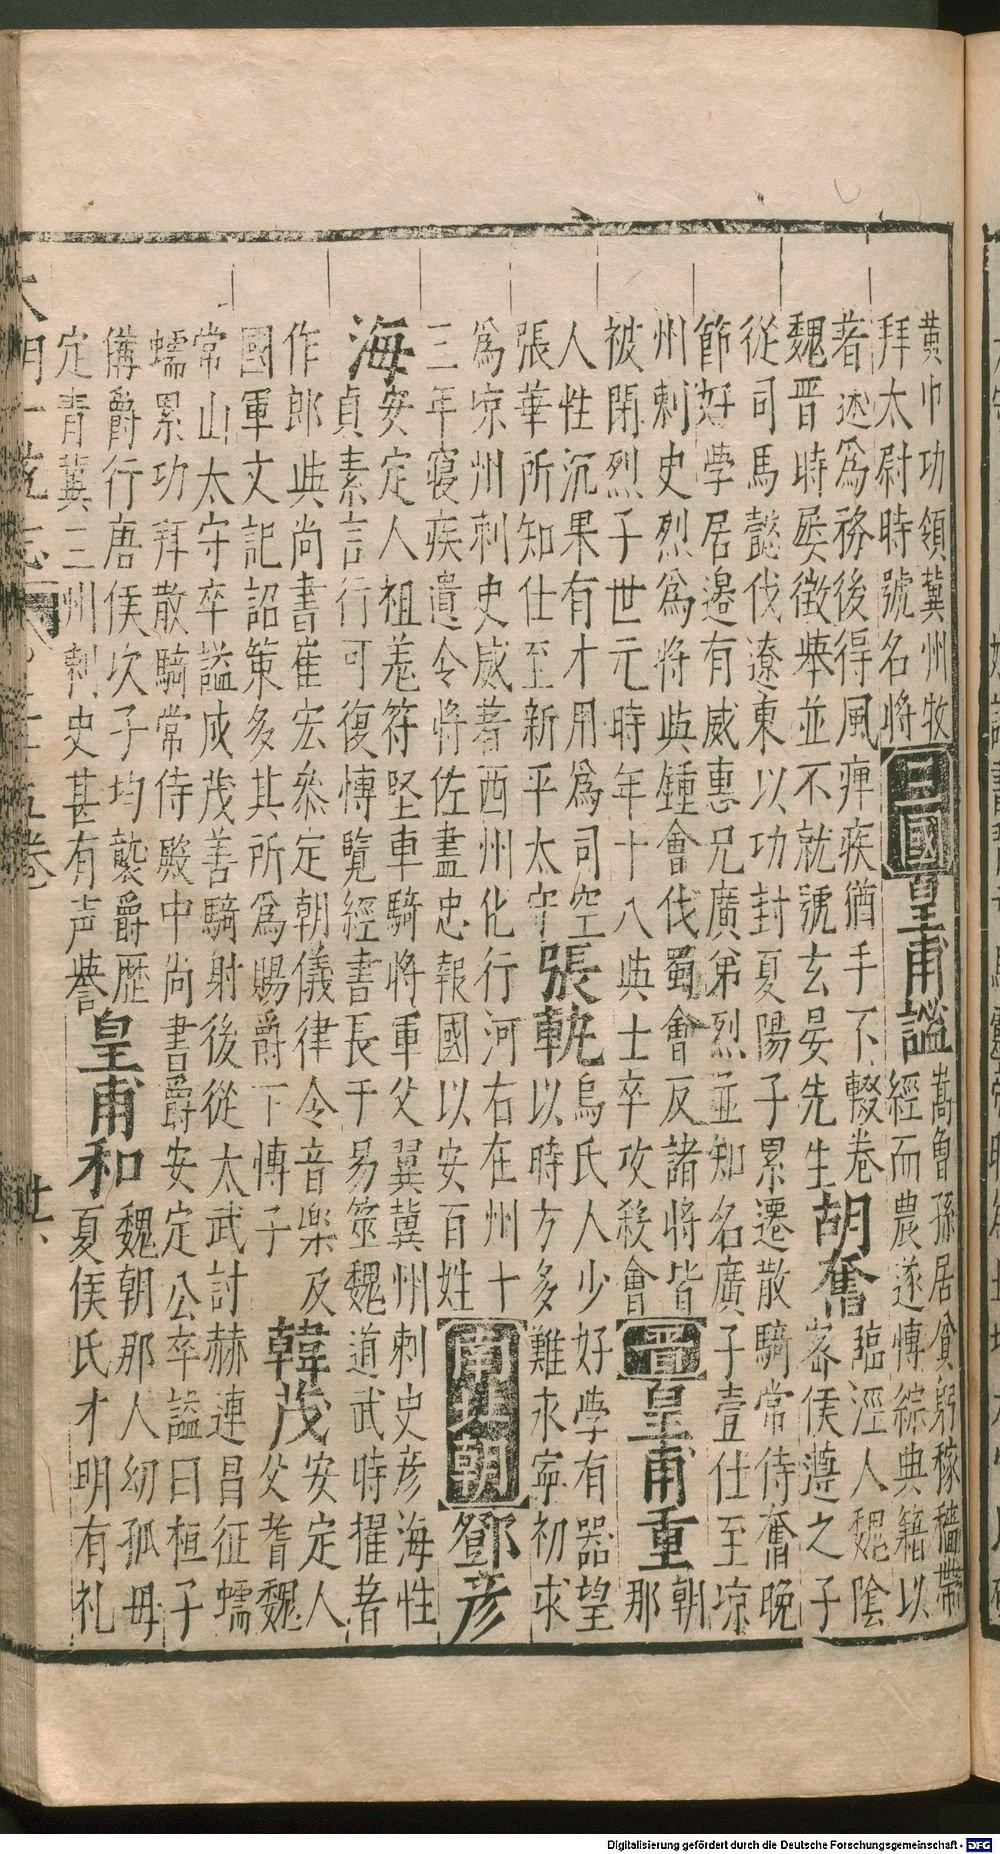 黄巾功領冀州牧
拜太尉時號名將
三國
皇甫謐
嵩魯孫居貧躬稼穡帶
經而農遂博綜典籍以
著述爲務後得風痺疾猶手不輟卷
魏晋時屡徵舉並不就號玄晏先生
胡奮
臨涇人魏陰
密侯遵之子
從司馬懿伐遼東以功封夏陽子累遷散騎常侍奮晚
節好學居邉有威惠兄廣弟烈並知名廣子壹仕至凉
州刺史烈爲將與鍾會伐蜀會反諸將皆
被閉烈子世元時年十八與士卒攻殺會
晋
皇甫重
朝
那
人性沉果有才用爲司空
張華所知仕至新平太守
張軌
烏氏人少好學有器望
以時方多難永寧初求
爲凉州刺史威著西州化行河右在州十
三年寝疾遺令將佐盡忠報國以安百姓
南北朝
鄧彦
海
安定人祖羗符堅車騎將軍父翼冀州刺史彦海性
貞素言行可復博覽經書長于易筮魏道武時擢著
作郎與尚書崔宏叅定朝儀律令音樂及
國軍文記詔策多其所爲賜爵下博子
韓茂
安定人
父耆魏
常山太守卒謚成茂善騎射後從太武討赫連昌征蠕
蠕累功拜散騎常侍殿中尚書爵安定公卒謚曰桓子
俻爵行唐侯次子均襲爵歴
定青冀三州刺史甚有声譽
皇甫和
魏朝那人幼孤毋
夏侯氏才明有礼
Digitalisierung gefördert durch die Deutsche Forschungsgemeinschaft - DFG